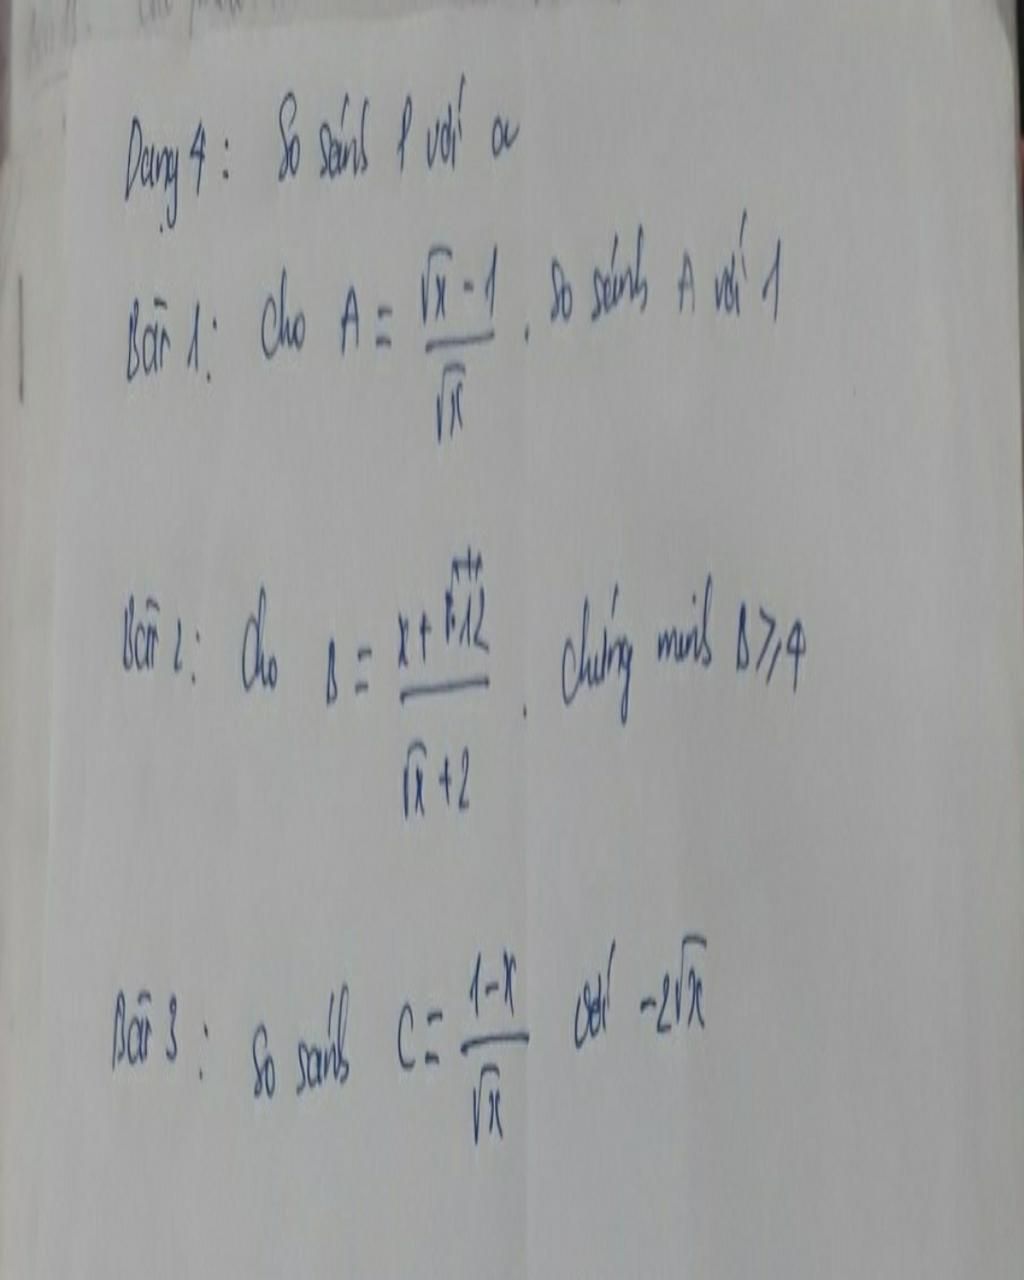 Dạng 4: So sánh P với α
Bài 1: Cho A = (√x - 1)/√x. So sánh A với 1
Bài 2: Cho B = (x + 12)/(√x + 2). Chứng minh B ⩾ 4
Bài 3: So sánh C = (1-x)/√x với -2√x